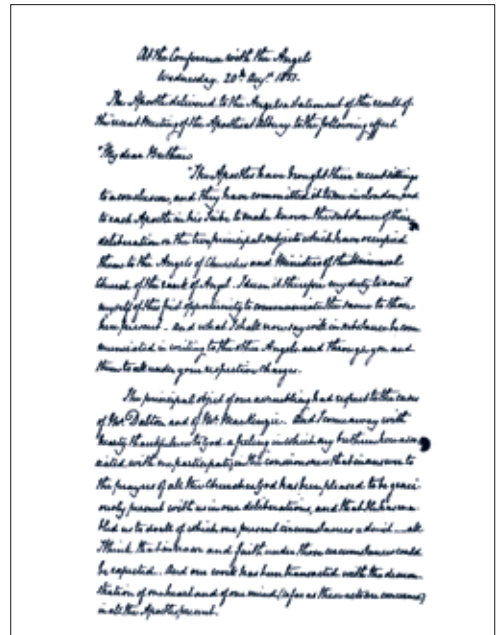 At the Conference with the Angels
Wednesday. 20th Augt. 1851.
The Apostle delivered to the Angels a Statement of the result of
the recent Meeting of the Apostles at Albury to the following effect.
"My dear Brethren
"The Apostles have brought their recent sittings
to a conclusion, and they have committed it to me in London, and
to each Apostle in his Tribe to make known the substance of their
deliberation on the two principal subjects which have occupied
them to the Angels of Churches and Ministers of the Universal
Church of the rank of Angel. I deem it therefore my duty to avail
myself of this first opportunity to communicate the same to those
here present. And what I shall now say will in substance be com
municated in writing to the other Angels and through you and
them to all under your respective charges.
The principal object of our assembling had respect to the cases
of Mr. Dalton and of Mr. MacKenzie. And I come away with
hearty thankfulness to God a feeling in which my brethren here asso
ciated with me participate, in the consciousness that in answer to
the prayers of all the Churches God has been pleased to be graci
ously present with us in our deliberations, and that He has ena
bled us to do all of which our present circumstances admit — all
I think that in reason and faith under those circumstances could
be expected. And our work has been transacted with the demon
stration of one heart and of one mind (so far as these acts are concerned)
in all the Apostles present.